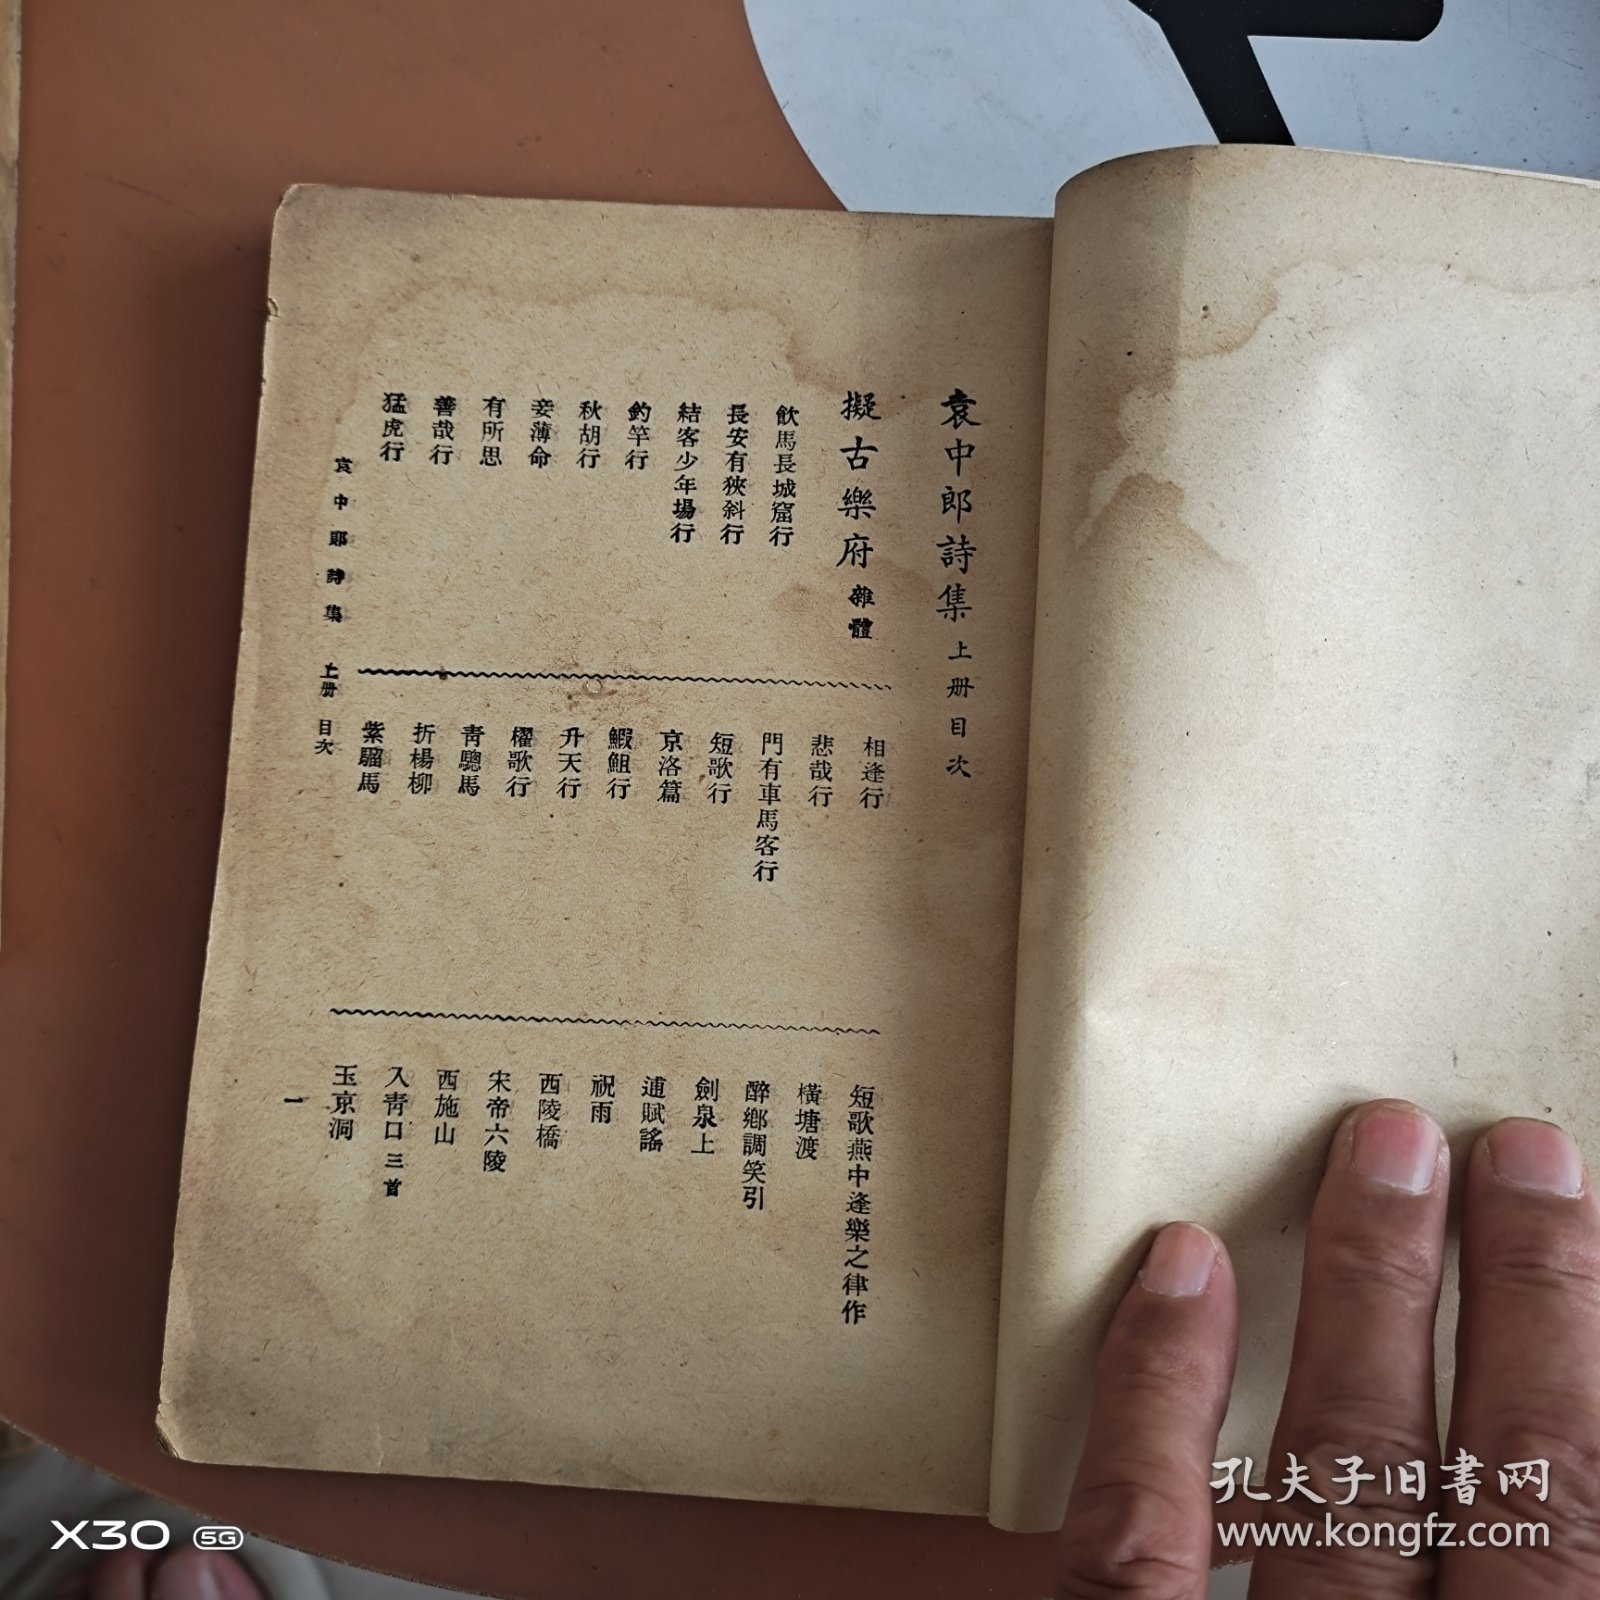 袁中郎詩集 上册目次
擬古樂府 雜體
飲馬長城窟行
長安有狹斜行
結客少年場行
釣竿行
秋胡行
妾薄命
有所思
善哉行
猛虎行
相逢行
悲哉行
門有車馬客行
短歌行
京洛篇
鰕䱇行
升天行
櫂歌行
靑驄馬
折楊柳
紫騮馬
短歌燕中逢樂之律作
橫塘渡
醉鄉調笑引
劍泉上
逋賦謠
祝雨
西陵橋
宋帝六陵
西施山
入靑口 三首
玉京洞
袁中郎詩集 上册 目次
一
孔夫子旧書网
www.kongfz.com
X30 5G